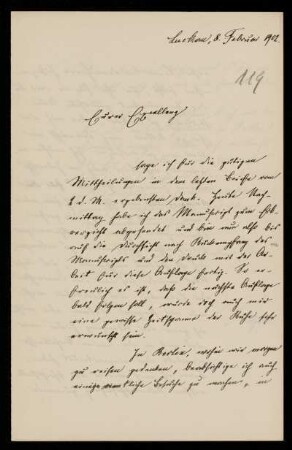 Luckau, 8. Februar 1902.
119
Eurer Excellenz
sage ich für die gütigen
Mittheilungen in dem letzten Briefe vom
2 d. M. ergebensten Dank. Heute Nach-
mittag habe ich das Manuscript zum
abgesendet und bin nun also bis
auf die Durchsicht nach Rückempfang des
Manuscripts und den Druck mit der Ar-
beit für diese Auflage fertig. So er-
freulich es ist, daß die nächste Auflage
bald folgen soll, würde doch auch mir
eine gewisse Zeitspanne der Ruhe sehr
erwünscht sein.
In Berlin, wohin wir morgen
zu reisen gedenken, beabsichtige ich auch
einige Besuche zu machen, in